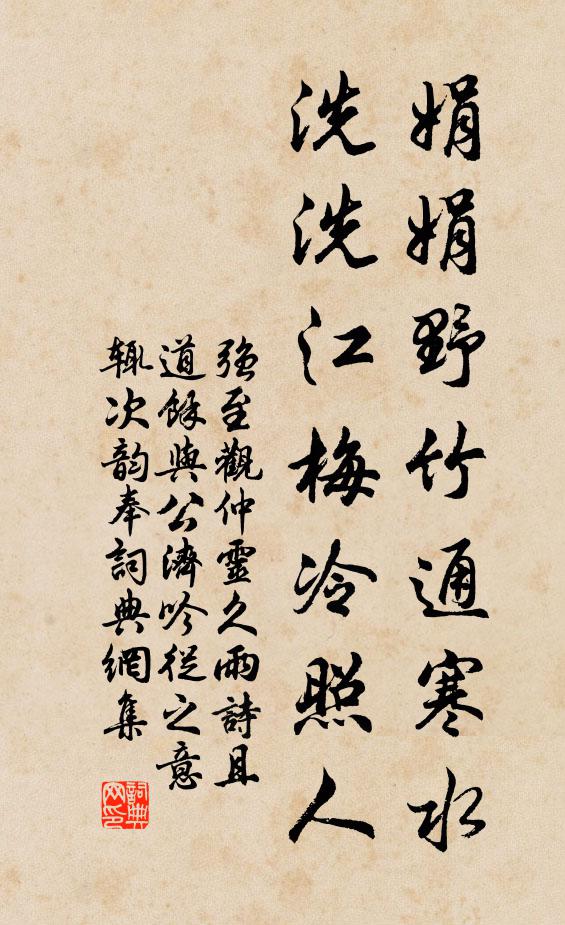 娟娟野竹通寒水
洗洗江梅冷照人
強至觀仲靈久雨詩且
道餘與公濟吟從之意
輒次韵奉詞典網集
詞典
网印